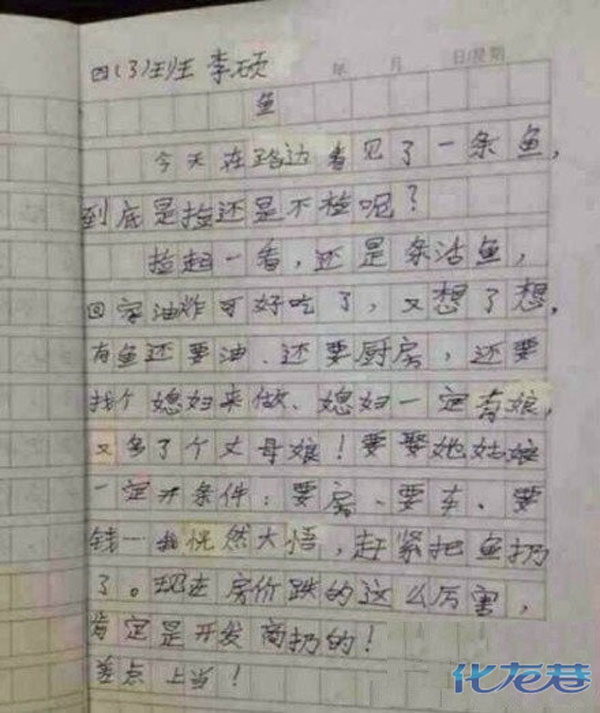 四(3)班 李硕
年 月 日 星期
鱼
今天在路边看见了一条鱼,
到底是捡还是不捡呢?
捡起一看,还是条活鱼,
回家油炸可好吃了,又想了想,
有鱼还要油、还要厨房,还要
找个媳妇来做、媳妇一定有娘,
又多了个丈母娘!要娶她姑娘
一定开条件:要房、要车、要
钱一我恍然大悟,赶紧把鱼扔
了。现在房价跌的这么厉害,
肯定是开发商扔的!
差点上当!
化龙巷